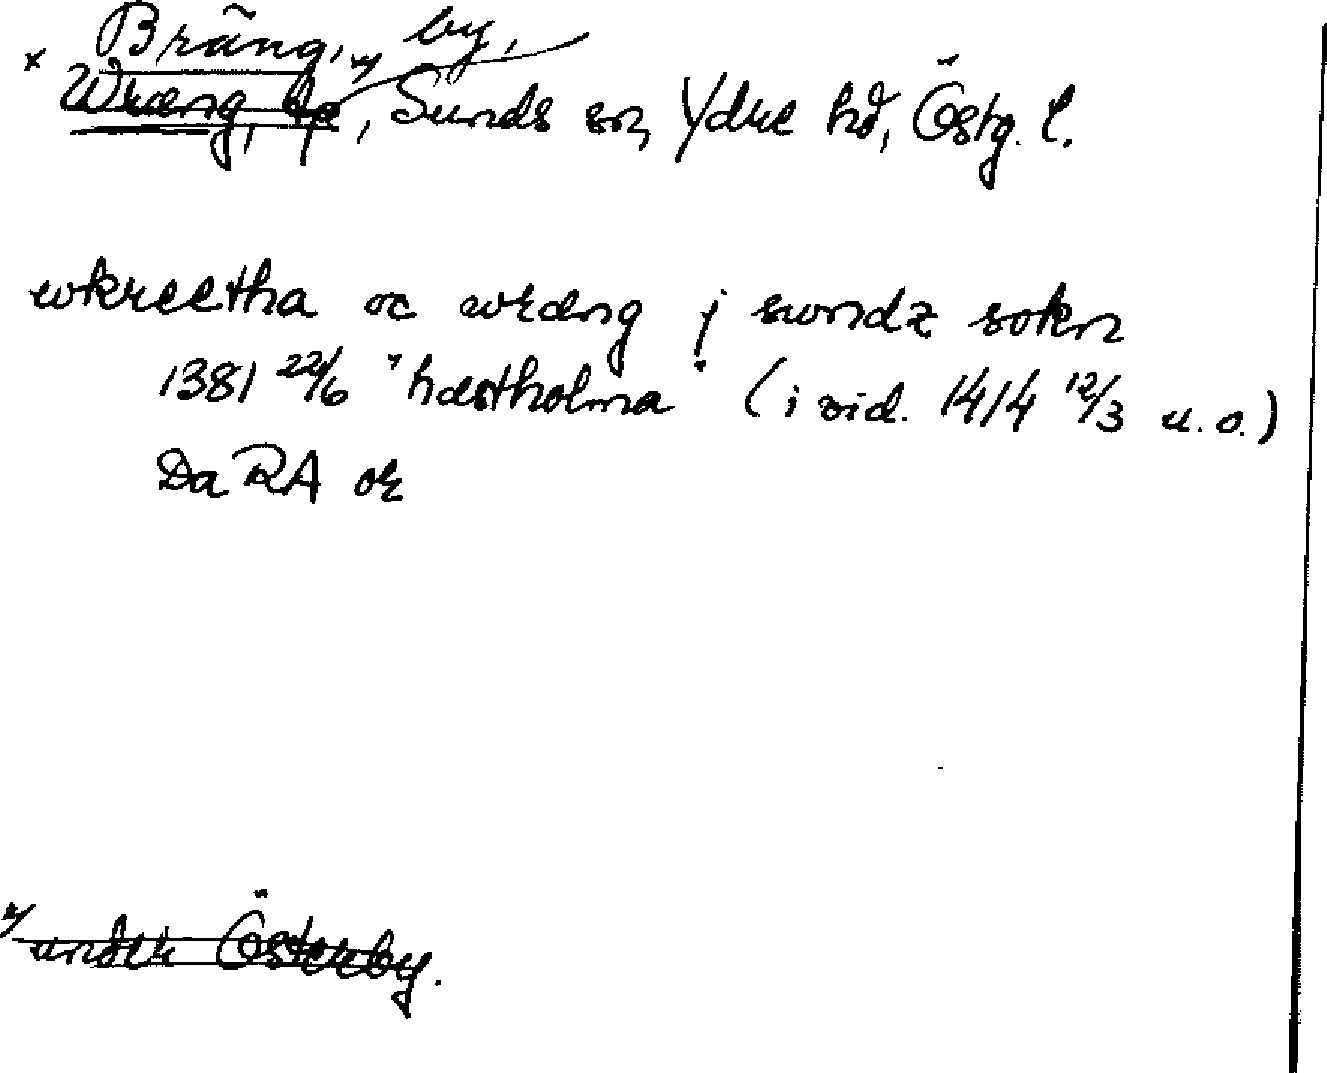 Bräng, by,
x Wræng, by, Sunds sn, Ydre hd, Östg. l.
wkreetha oc wræng j sundz sokn
1381 22/6 "hæstholma" (i vid. 1414 12/3 u.o.)
Da RA or
under Österby.